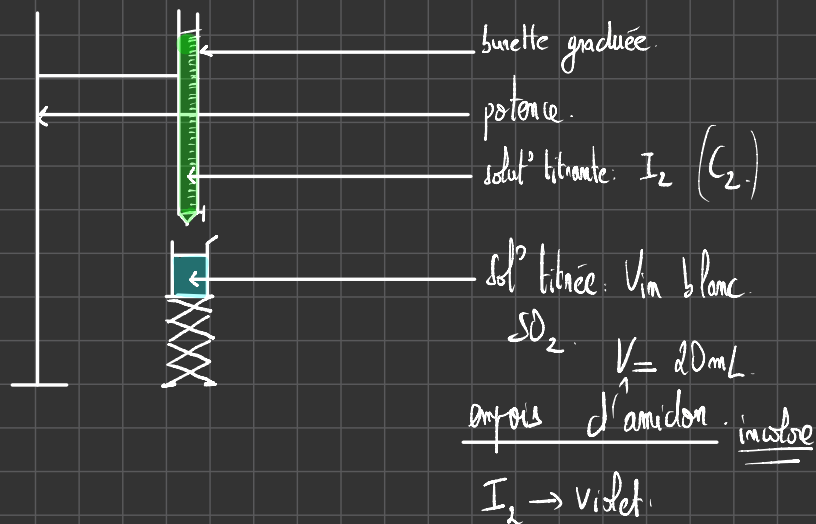 burette graduée.
potence.
solut° titrante: I₂ (C₂.)
Sol° titrée: Vin blanc.
SO₂.
V₁ = 20mL.
empois d'amidon. incolore
I₂ → violet.